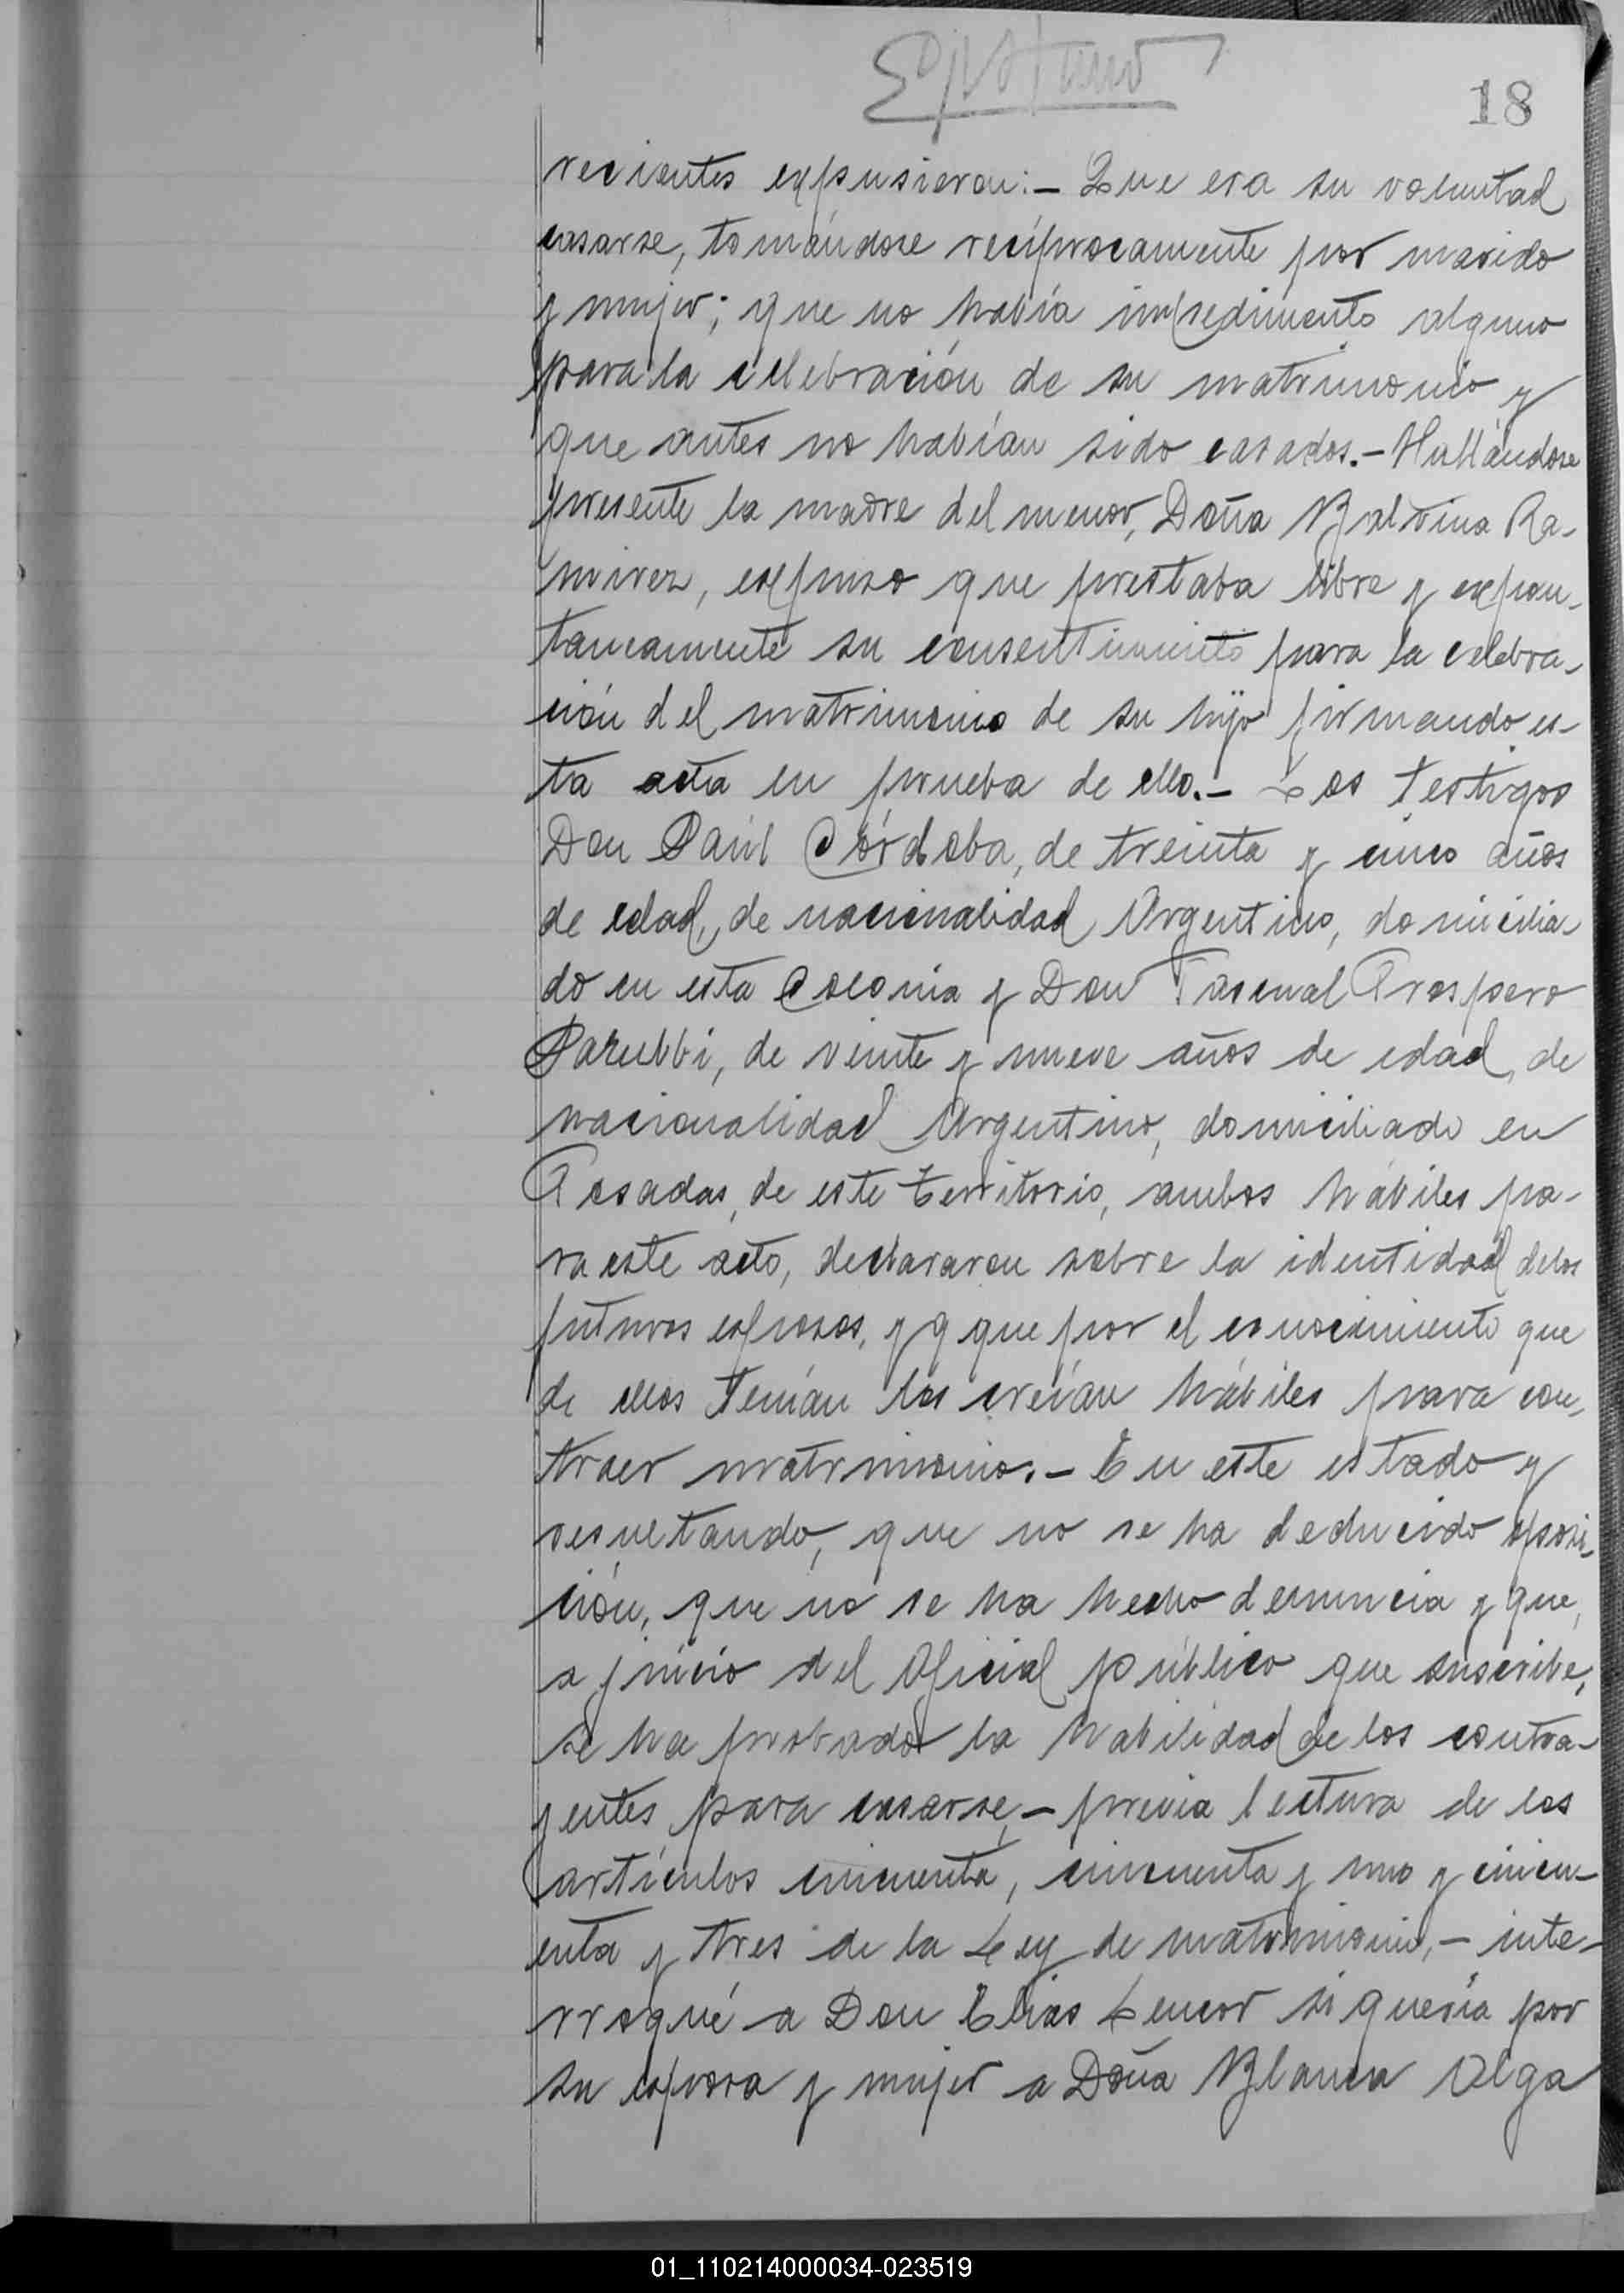 18
recientes expusieron:- Que era su voluntad
casarse, tomándose recíprocamente por marido
y mujer; que no había impedimento alguno
para la celebración de su matrimonio y
que antes no habían sido casados.- Hallándose
presente la madre del menor, Doña Balvina Ra-
mirez, expuso que prestaba libre y expon-
taneamente su consentimiento para la celebra-
ción del matrimonio de su hijo firmando es-
ta acta en prueba de ello.- Los testigos
Don Raúl Córdoba, de treinta y cinco años
de edad, de nacionalidad Argentino, domicilia-
do en esta Colonia y Don Pascual Prospero
de veinte y nueve años de edad, de
nacionalidad Argentino, domiciliado en
Posadas, de este territorio, ambos hábiles pa-
ra este acto, declararon sobre la identidad delos
futuros esposos, y q que por el conocimiento que
de ellos tenían los creían hábiles para con-
traer matrimonio.- En este estado y
resultando, que no se ha deducido oposi-
ción, que no se ha hecho denuncia y que,
a juicio del Oficial público que suscribe,
se ha probado la habilidad de los contra-
yentes para casarse,- previa lectura de los
artículos cincuenta, cincuenta y uno y cincu-
enta y tres de la Ley de matrimonio,- inte-
rrogué a Don Elias Lencor si quería por
su esposa y mujer a Doña Blanca Olga
01_110214000034-023519